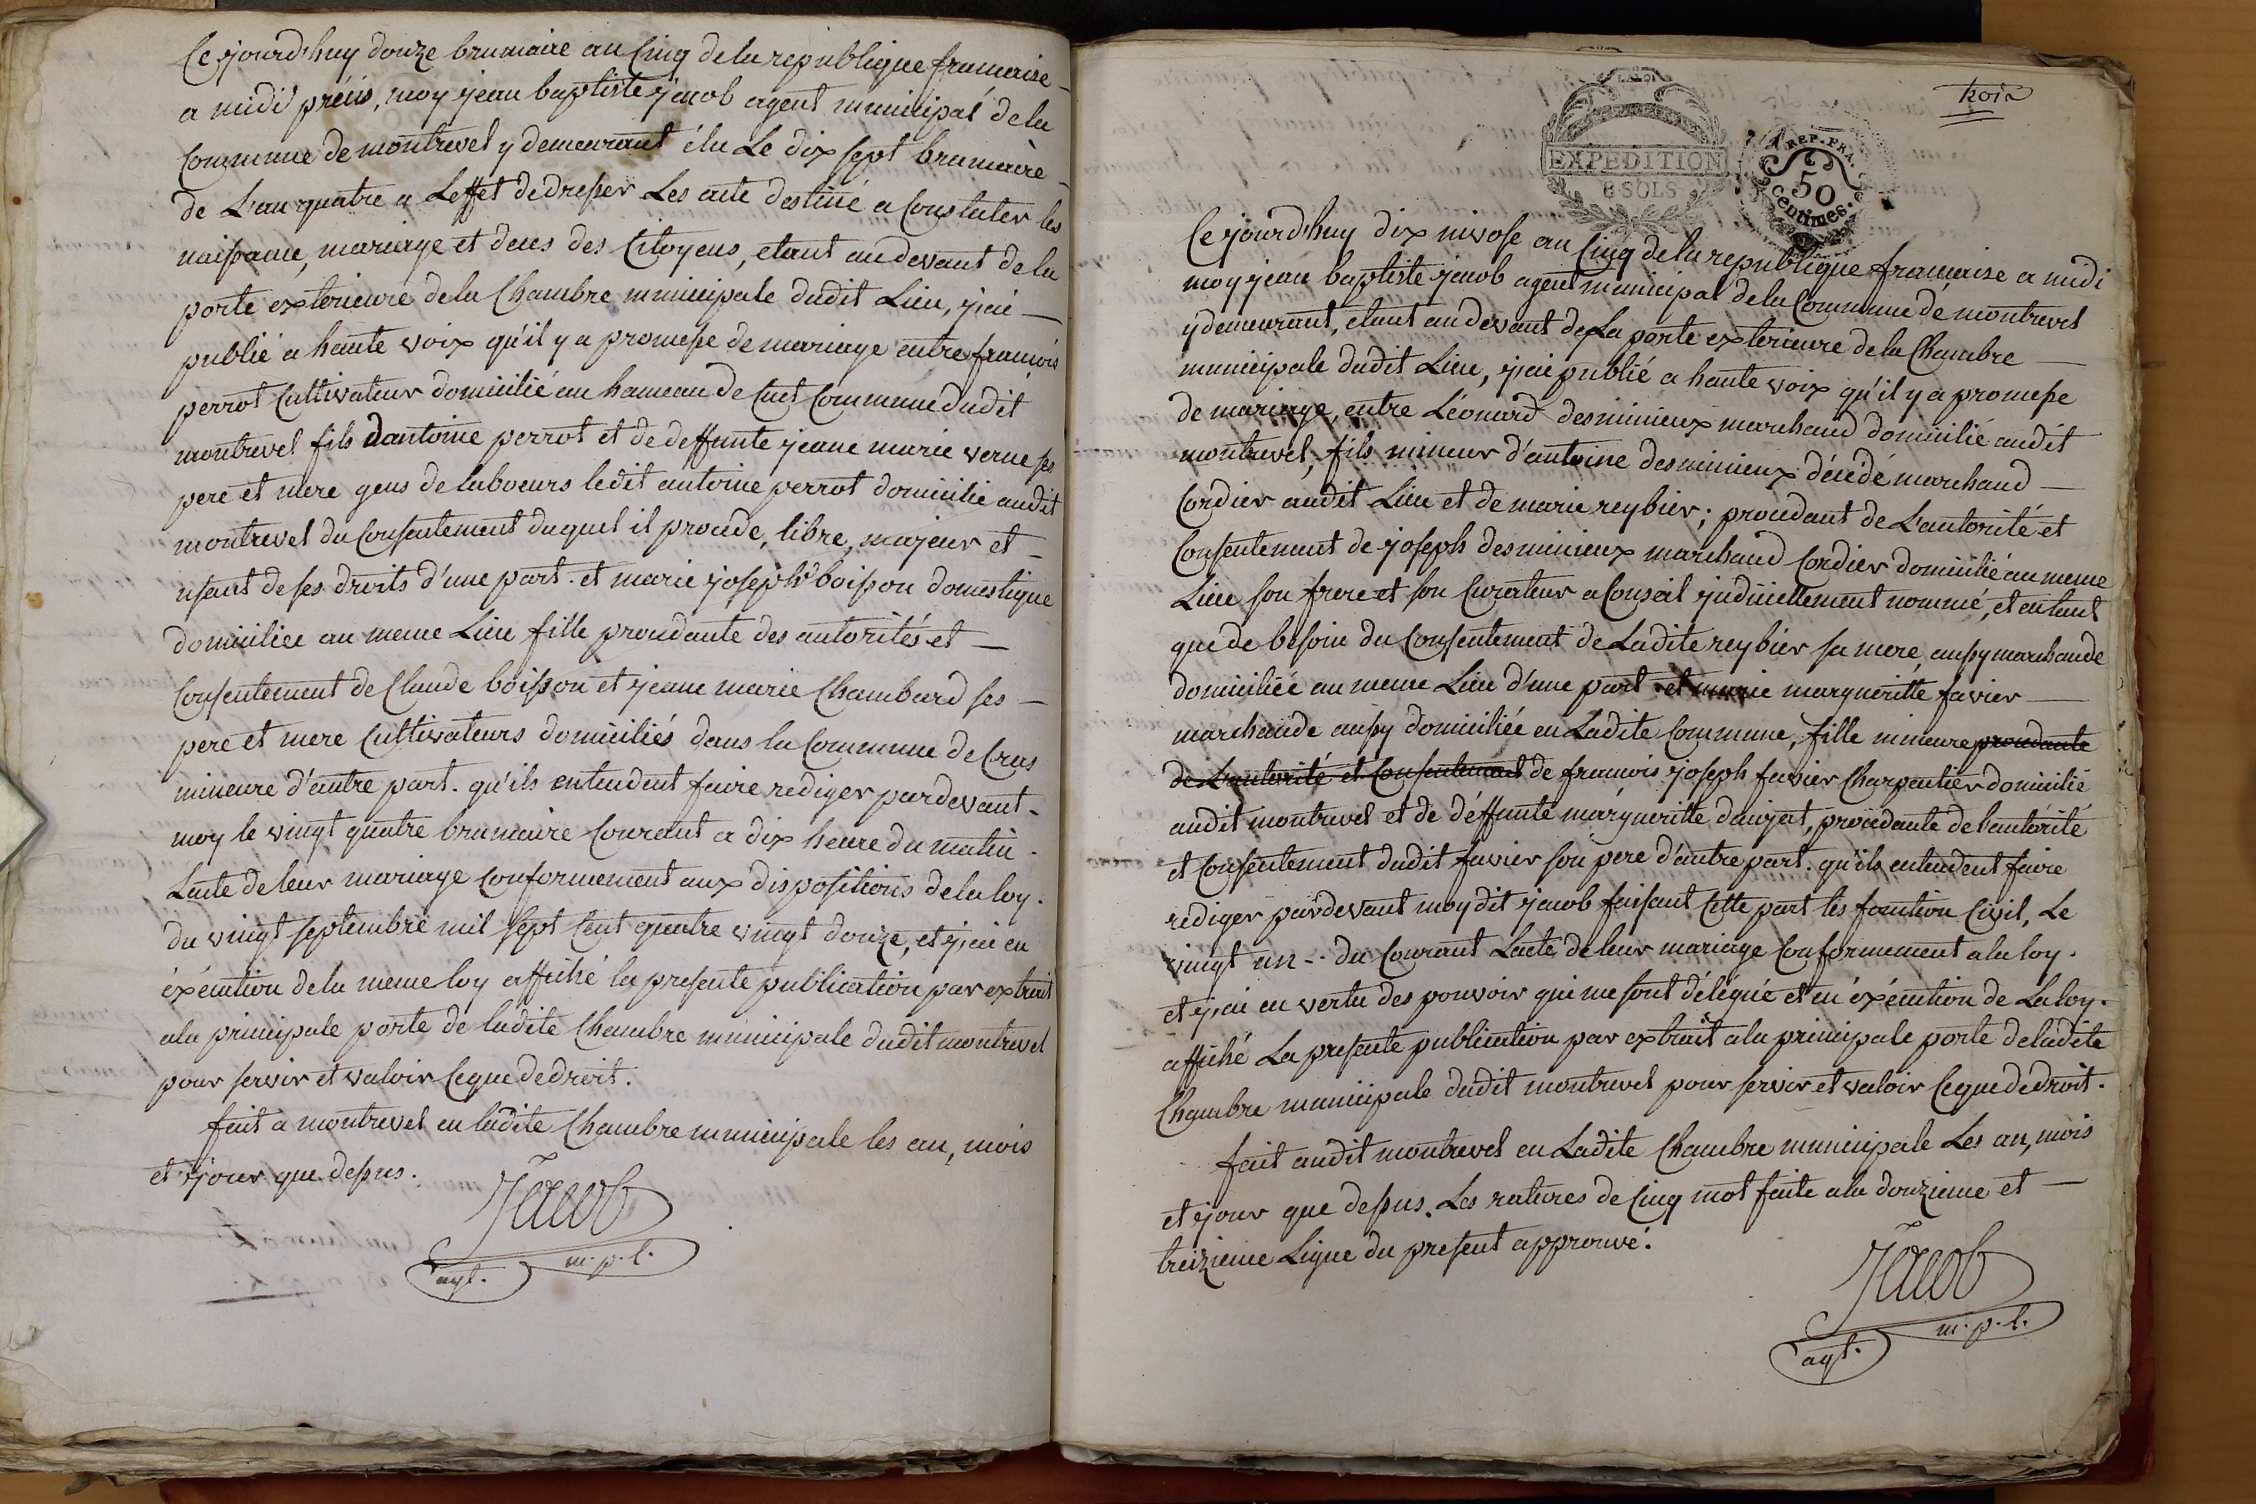 Ce yjourd'huy douze brumaire an Cinq de la republique francaise
a midi précis, moy jean baptiste jacob agent municipal de la
Commune de montrevel y demeurant élu Le dix sept brumaire
de L'an quatre a L'effet de dresser Les acte destiné a Constater les
naissance, mariage et deces des Citoyens, etant au devant de la
porte exterieure de la Chambre municipale dudit Lieu, j'ai
publié a haute voix qu'il y a promesse de mariage entre francois
perrot Cultivateur domicilié au hameau de Cuet Commune dudit
montrevel fils d'antoine perrot et de deffunte jeane marie verne ses
pere et mere gens de laboeurs ledit antoine perrot domicilié audit
montrevel du Consentement duquel il procede, libre, majeur et
usant de ses droits d'une part. et marie joseph boisson domestique
domiciliee au meme Lieu fille procedante des autorités et
Consentement de Claude boisson et jeane marie Chambard ses
pere et mere Cultivateurs domiciliés dans la Commune de Cras
mineure d'autre part. qu'ils entendent faire rediger pardevant
moy le vingt quatre brumaire Courant a dix heure du matin
L'acte de leur mariage Conformement aux dispositions de la loy.
du vingt septembre mil sept Cent quatre vingt douze, et j'ai en
éxécution de la meme loy affiché la presente publication par extrait
a la principale porte de ladite Chambre municipale dudit montrevel
pour servir et valoir Ceque de droit.
fait a montrevel en ladite Chambre municipale les an, mois
et jour que dessus.
Jacob
agt. m.p.l.
trois
EXPEDITION
8 SOLS
REP. FRA.
50
Centimes.
Ce yjourd'huy dix nivose an Cinq de la republique francaise a midi
moy jean baptiste jacob agent municipal de la Commune de montrevel
y demeurant, etant au devant de La porte exterieure de la Chambre
municipale dudit Lieu, j'ai publié a haute voix qu'il y a promesse
de mariage, entre Léonard desminieux marchand domicilié audit
montrevel, fils mineur d'antoine desminieux décédé marchand
Cordier audit Lieu et de marie reybier; procedant de L'autorité et
Consentement de joseph desminieux marchand Cordier domicilié au meme
Lieu son frere et son Curateur a Conseil judiciellement nommé, et en tant
que de besoin du Consentement de Ladite reybier sa mere, aussy marchande
domiciliée au meme Lieu d'une part et marie marguerite favier
marchande aussy domiciliée en Ladite Commune, fille mineure procedante
de L'autorité et Consentement de francois joseph favier Charpentier domicilié
audit montrevel et de déffunte marguerite daujat, procedante de l'autorité
et Consentement dudit favier son pere d'autre part. qu'ils entendent faire
rediger pardevant moy dit jacob faisant Cette part les fonction Civil, Le
vingt un du Courant L'acte de leur mariage Conformement a la loy.
et j'ai en vertu des pouvoir qui me sont délégué et en éxécution de La loy.
affiché La presente publication par extrait a la principale porte de ladite
Chambre municipale dudit montrevel pour servir et valoir Ceque de droit.
fait audit montrevel en Ladite Chambre municipale Les an, mois
et jour que dessus. Les ratures de Cinq mot faite a la douzieme et
treizieme Ligne du present approuvé.
Jacob
agt. m.p.l.